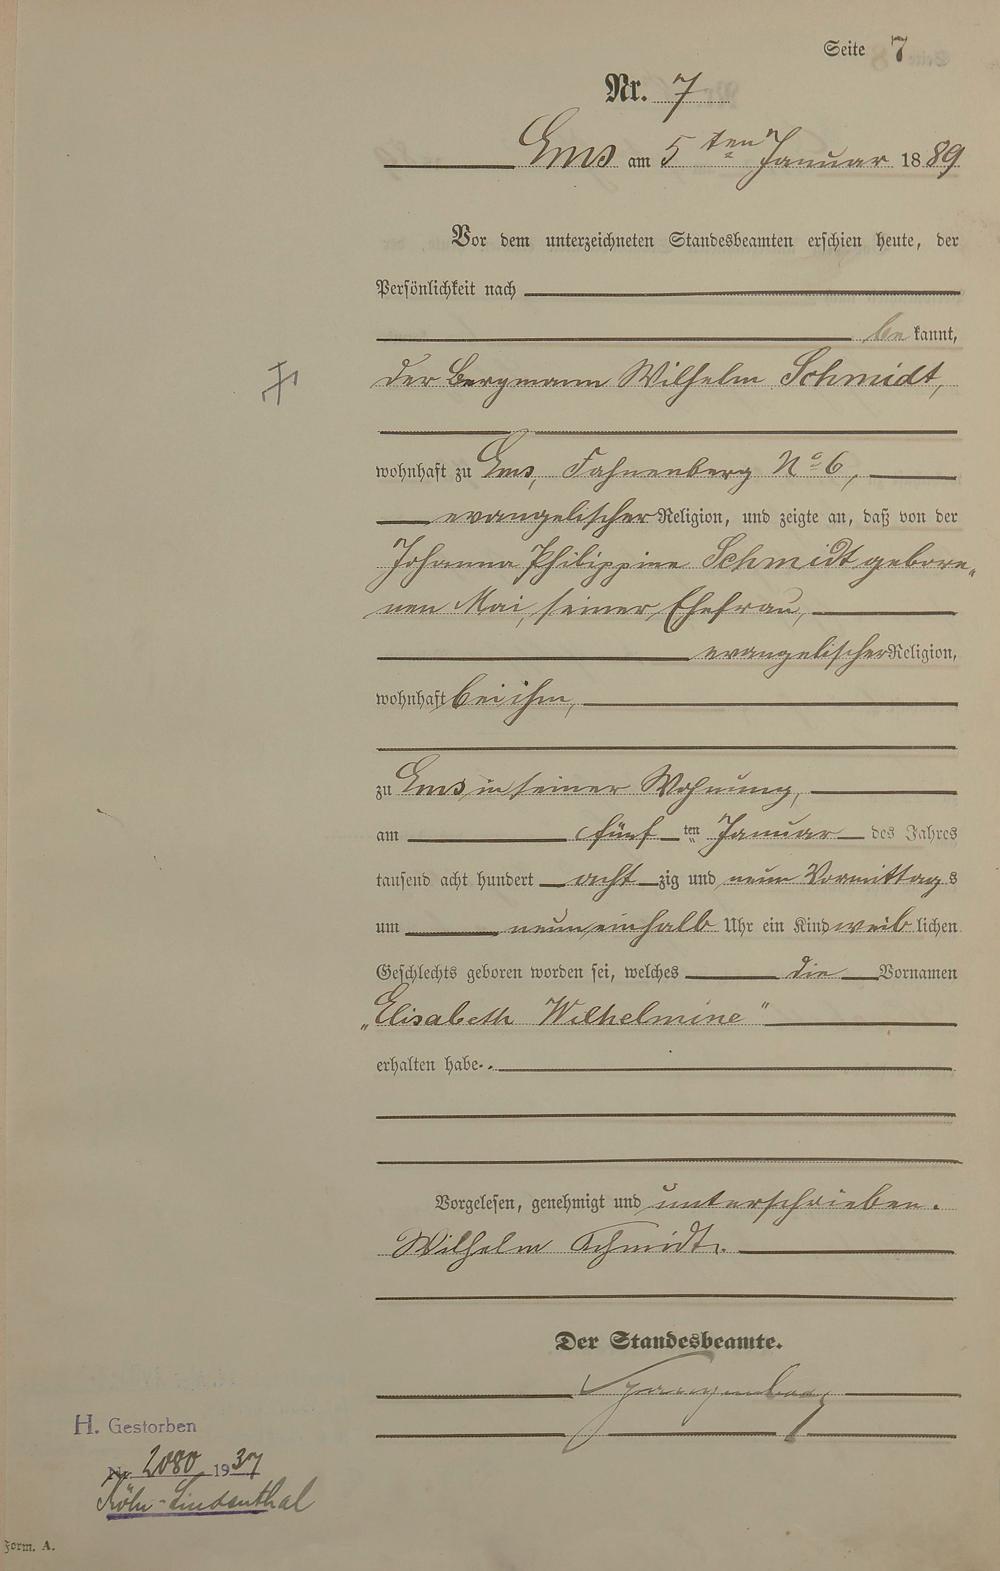 Seite 7
Nr. 7
Ems am 5ten Januar 1889
Vor dem unterzeichneten Standesbeamten erschien heute, der
Persönlichkeit nach
be kannt,
der Bergmann Wilhelm Schmidt,
wohnhaft zu Ems, Fahnenberg No 6,
evangelischer Religion, und zeigte an, daß von der
Johanna Philippine Schmidt gebore„
nen Mai, seiner Ehefrau,
evangelischer Religion,
wohnhaft bei ihm,
zu Ems in seiner Wohnung,
am fünf ten Januar des Jahres
tausend acht hundert acht zig und neun Vormittags
um neun einhalb Uhr ein Kind weib lichen
Geschlechts geboren worden sei, welches die Vornamen
„Elisabeth Wilhelmine"
erhalten habe.
Vorgelesen, genehmigt und unterschrieben.
Wilhelm Schmidt.
Der Standesbeamte.
H. Gestorben
Nr. 2080 1937
Köln-Lindenthal
Form. A.